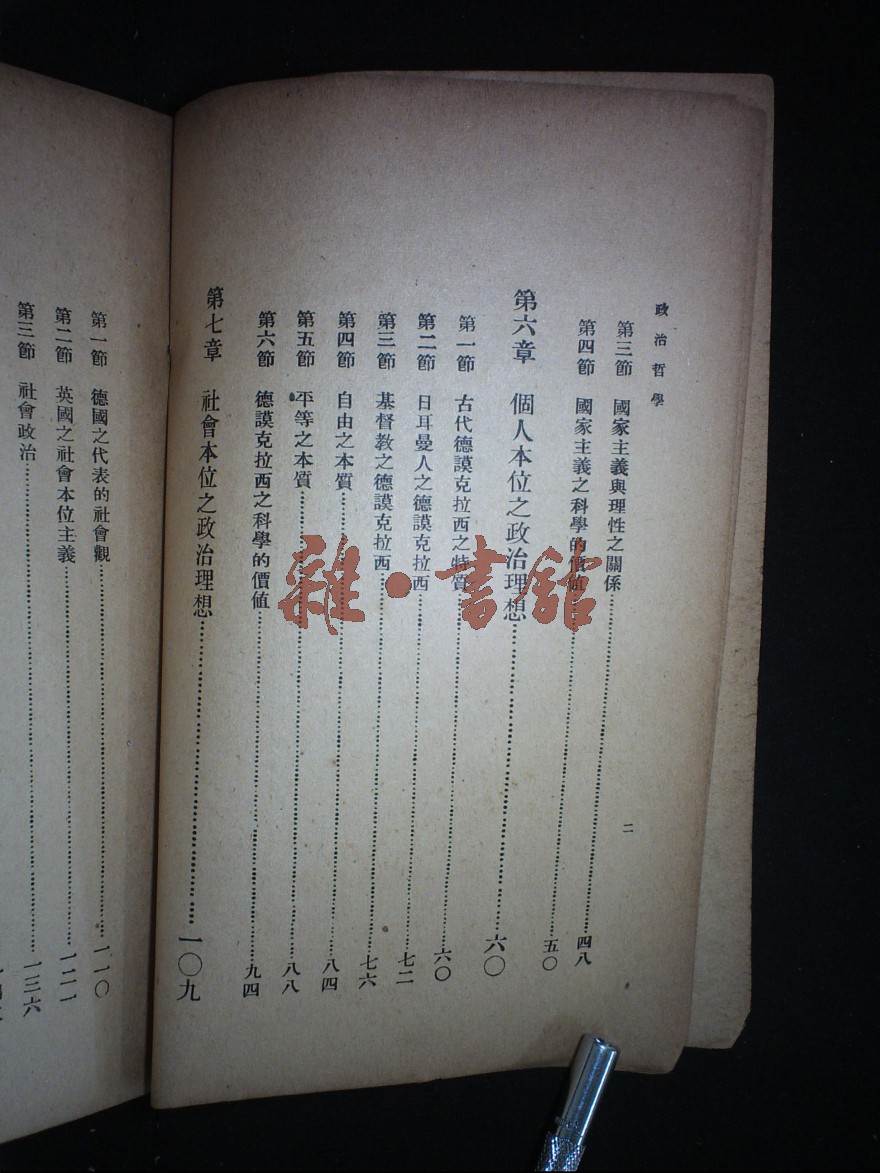 政治哲學
二
第三節 國家主義與理性之關係……四八
第四節 國家主義之科學的價値……五〇
第六章 個人本位之政治理想……六〇
第一節 古代德謨克拉西之特質……六〇
第二節 日耳曼人之德謨克拉西……七二
第三節 基督教之德謨克拉西……七六
第四節 自由之本質……八四
第五節 平等之本質……八八
第六節 德謨克拉西之科學的價値……九四
第七章 社會本位之政治理想……一〇九
第一節 德國之代表的社會觀……一一〇
第二節 英國之社會本位主義……一二一
第三節 社會政治……一三六
雜·書館